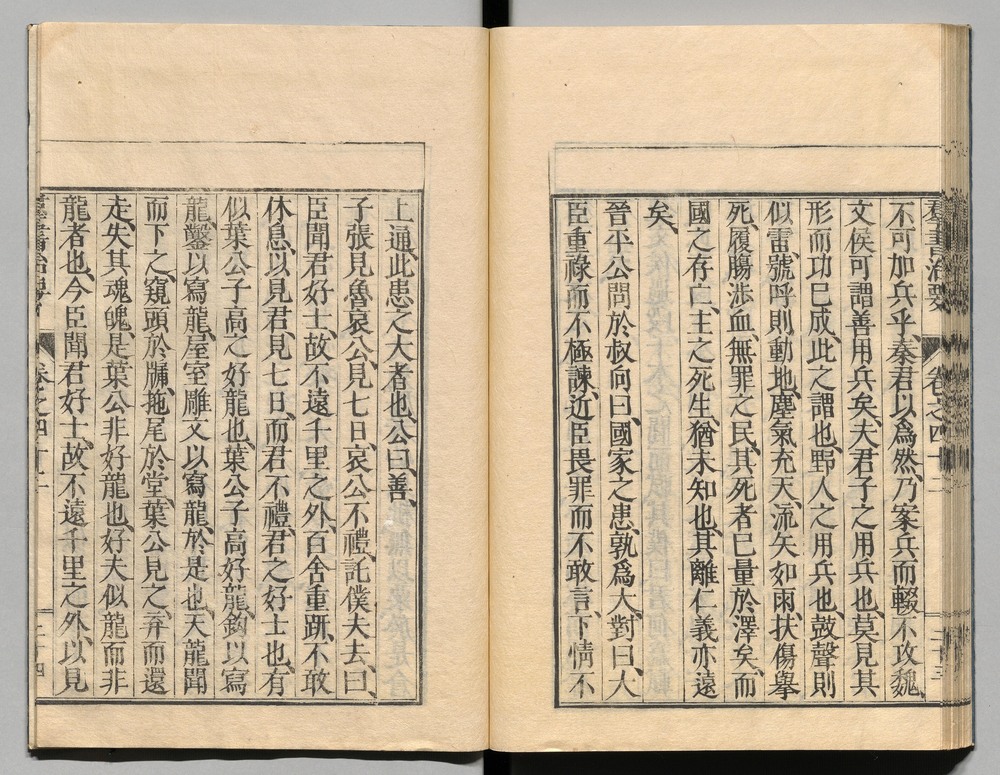 羣書治要 卷之四十二 二十三
不可加兵乎、秦君以爲然、乃案兵而輟不攻魏、
文侯可謂善用兵矣、夫君子之用兵也、莫見其
形而功已成、此之謂也、野人之用兵也、鼓聲則
似雷、號呼則動地、塵氣充天、流矢如雨、扶傷擧
死、履腸涉血、無罪之民、其死者已量於澤矣、而
國之存亡、主之死生、猶未知也、其離仁義亦遠
矣、
晉平公問於叔向曰、國家之患、孰爲大、對曰、大
臣重祿而不極諫、近臣畏罪而不敢言、下情不
上通、此患之大者也、公曰、善、
子張見魯哀公、見七日、哀公不禮、託僕夫去、曰、
臣聞君好士、故不遠千里之外、百舍重趼、不敢
休息、以見君、見七日、而君不禮、君之好士也、有
似葉公子高之好龍也、葉公子高好龍、鉤以寫
龍、鑿以寫龍、屋室雕文以寫龍、於是也、天龍聞
而下之、窺頭於牖、拖尾於堂、葉公見之、弃而還
走、失其魂魄、是葉公非好龍也、好夫似龍而非
龍者也、今臣聞君好士、故不遠千里之外、以見
羣書治要 卷之四十二 二十四